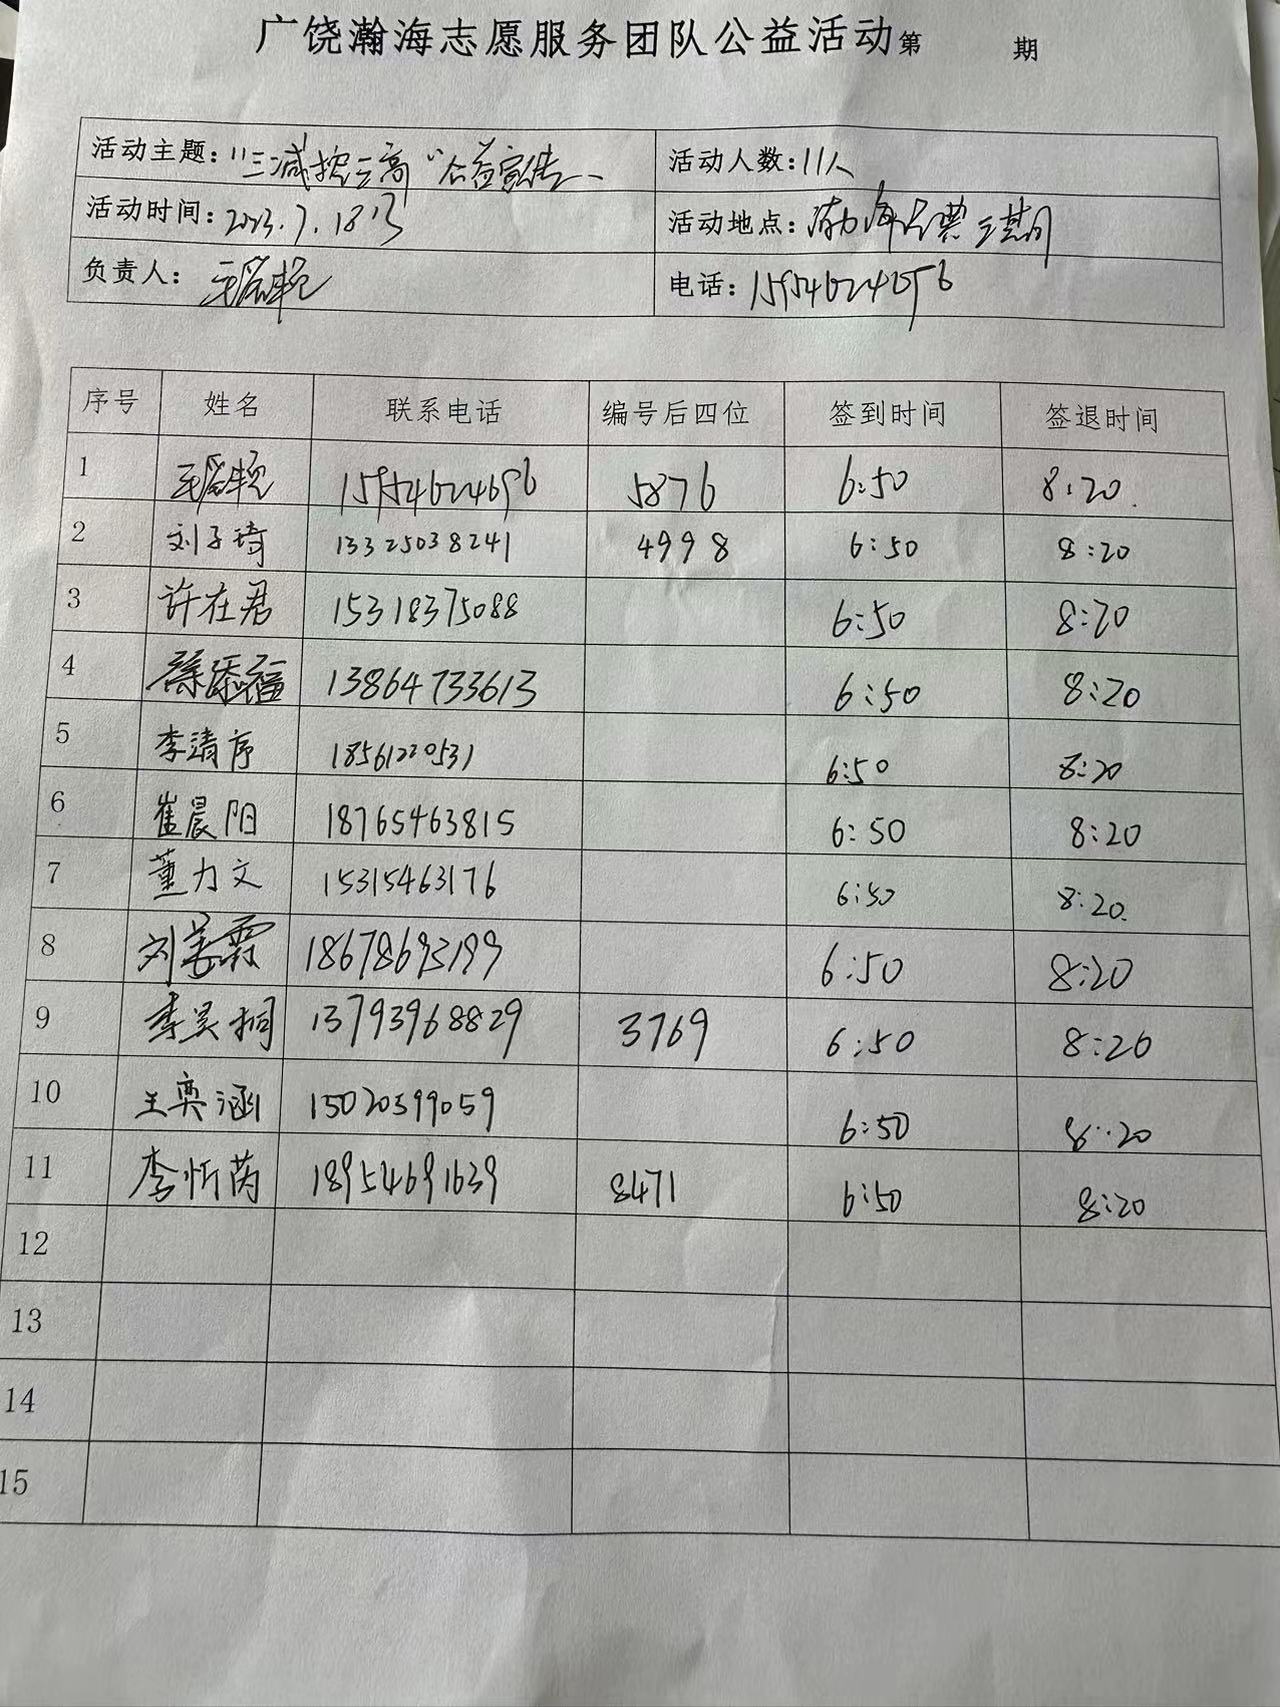 广饶瀚海志愿服务团队公益活动第 期
活动主题："三减控三高"公益宣传 活动人数：11人
活动时间：2023.7.18日 活动地点：渤海古典三期
负责人： 电话：15954624696
序号 姓名 联系电话 编号后四位 签到时间 签退时间
1 15954624696 5876 6:50 8:20
2 刘子琦 13325038241 4998 6:50 8:20
3 许在君 15318375088 6:50 8:20
4 徐添福 13864733613 6:50 8:20
5 李清序 18561220531 6:50 8:20
6 崔晨阳 18765463815 6:50 8:20
7 董力文 15315463176 6:50 8:20
8 刘姜霖 18678693199 6:50 8:20
9 李昊桐 13793968829 3769 6:50 8:20
10 王奕涵 15020599059 6:50 8:20
11 李忻芮 18954691639 8471 6:50 8:20
12
13
14
15